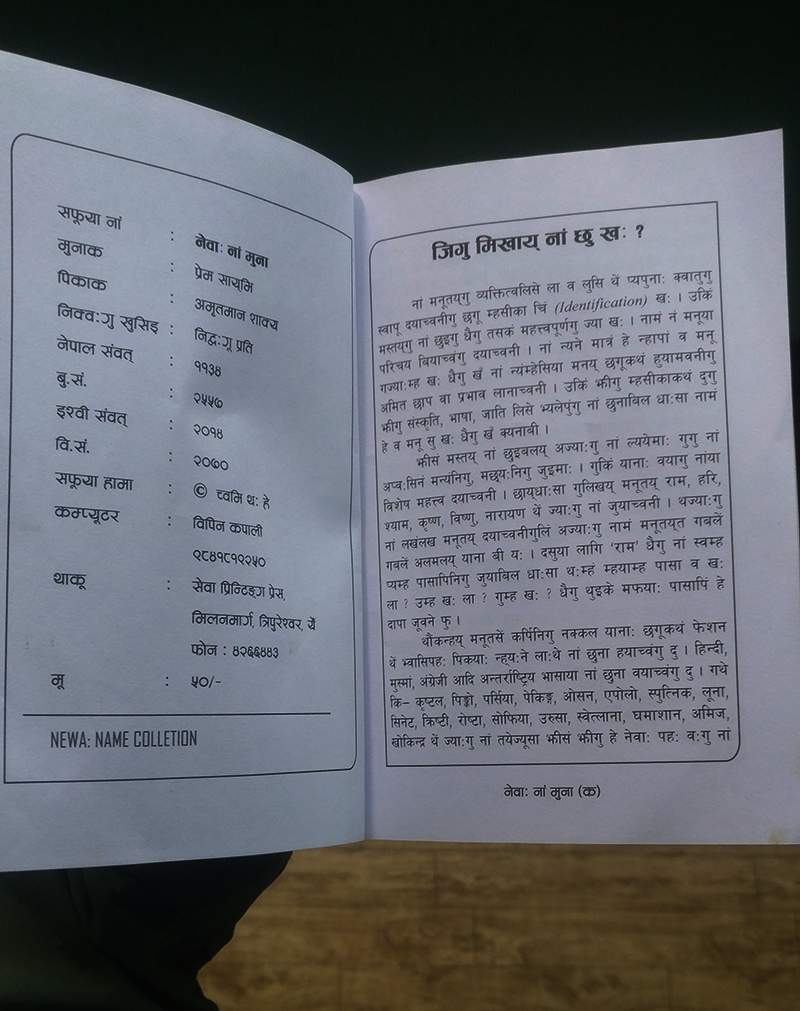 सफूया नां : नेवाः नां मुना
मुनाक : प्रेम सायमि
पिकाक : अमृतमान शाक्य
निक्वःगु खुसिइ : निद्वःगू प्रति
नेपाल संवत् : ११३४
बु.सं. : २५५७
इश्वी संवत् : २०१४
वि.सं. : २०७०
सफूया हामा : © च्वमि थः हे
कम्प्यूटर : विपिन कपाली
९८४१८१९२५०
थाकू : सेवा प्रिन्टिङ्ग प्रेस,
मिलनमार्ग, त्रिपुरेश्वर, यें
फोन : ४२६६४४३
मू : ५०/-
NEWA: NAME COLLETION
जिगु मिखाय् नां छु खः ?
नां मनूतय्‌गु व्यक्तित्वलिसे ला व लुसि थें प्यपुनाः क्वातुगु
स्वापू दयाच्वनीगु छगू म्हसीका चिं (Identification) खः । उकिं
मस्तय्‌गु नां छुइगु धैगु तसकं महत्त्वपूर्णगु ज्या खः । नामं नं मनूया
परिचय बियाच्वंगु दयाच्वनी । नां न्यने मात्रं हे न्हापां व मनू
गज्याःम्ह खः धैगु खँ नां न्यंम्हेसिया मनय् छगूकथं हुयामवनीगु
अमित छाप वा प्रभाव लानाच्वनी । उकिं झीगु म्हसीकाकथं दुगु
झीगु संस्कृति, भाषा, जाति लिसे भ्यलेपुंगु नां छुनाबिल धाःसा नामं
हे व मनू सु खः धैगु खँ क्यनाबी ।
झीसं मस्तय् नां छुइबलय् अज्याःगु नां ल्ययेमाः गुगु नां
अप्वःसिनं मन्यंनिगु, मछ्यःनिगु जुइमाः । गुकिं यानाः वयागु नांया
विशेष महत्त्व दयाच्वनी । छाय्‌धाःसा गुलिखय् मनूतय् राम, हरि,
श्याम, कृष्ण, विष्णु, नारायण थें ज्याःगु नां जुयाच्वनी । थज्याःगु
नां लखंलख मनूतय् दयाच्वनीगुलिं अज्याःगु नामं मनूतय्‌त गबलें
गबलें अलमलय् याना बी यः । दसुया लागि ‘राम’ धैगु नां स्वम्ह
प्यम्ह पासापिनिगु जुयाबिल धाःसा थःम्हं म्हयाम्ह पासा व खः
ला ? उम्ह खः ला ? गुम्ह खः ? धैगु थुइके मफयाः पासापिं हे
दापा जूवने फु ।
थौंकन्हय् मनूतसें कर्पिनिगु नक्कल यानाः छगूकथं फेशन
थें भ्वासिपहः पिकयाः न्ह्यःने लाःथे नां छुना हयाच्वंगु दु । हिन्दी,
मुस्मां, अंग्रेजी आदि अन्तर्राष्ट्रिय भासाया नां छुना वयाच्वंगु दु । गथे
कि– कृष्टल, पिङ्की, पर्सिया, पेकिङ्ग, ओसन, एपोलो, स्पुत्निक, लूना,
सिनेट, क्रिष्टी, रोष्टा, सोफिया, उरुसा, स्वेत्लाना, घमाशान, अमिज,
खोकिन्द्र थें ज्याःगु नां तयेज्यूसा झीसं झीगु हे नेवाः पहः वःगु नां
नेवाः नां मुना (क)